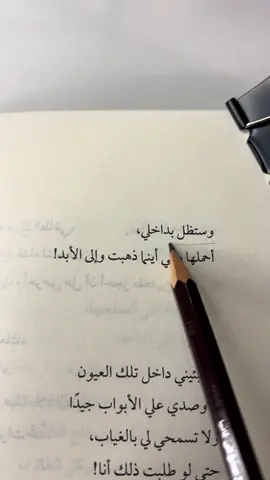 وستظل بداخلي،
أحملها أينما ذهبت وإلى الأبد!
داخل تلك العيون
وصدي علي الأبواب جيدًا
ولا تسمحي لي بالغياب،
حتى لو طلبت ذلك أنا!